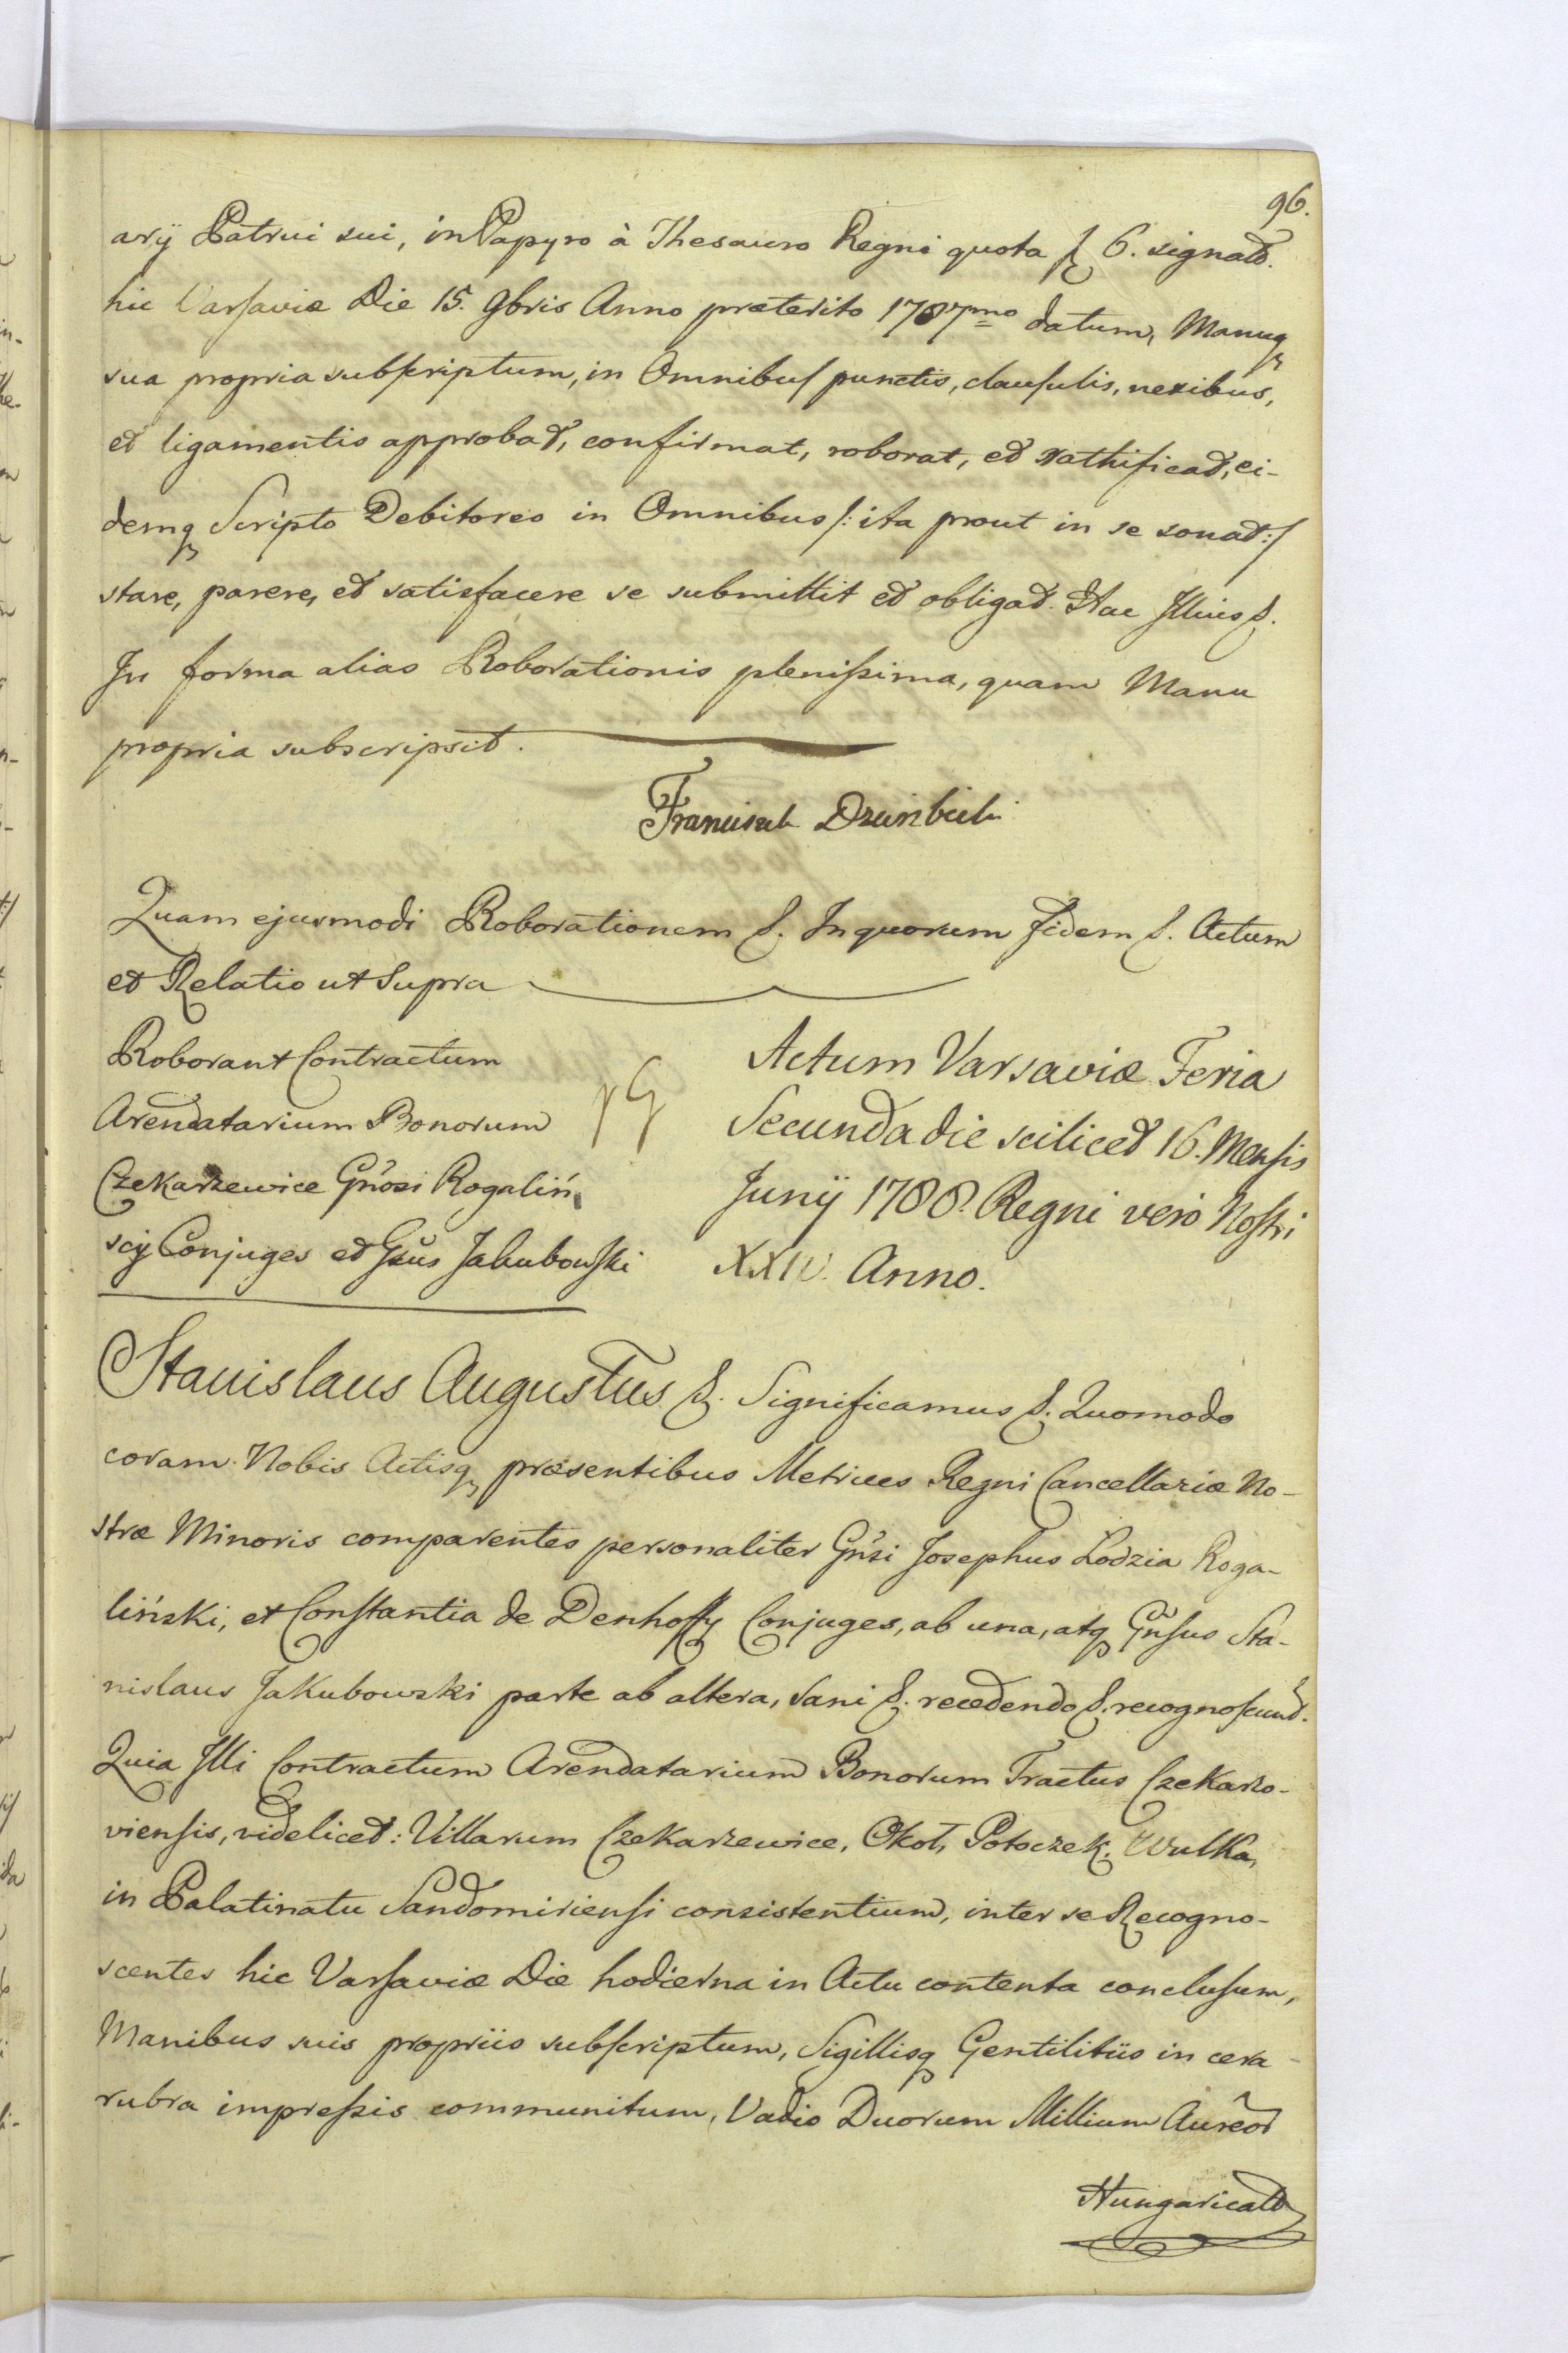 96.
arÿ Patrui sui, in Papyro à Thesauro Regni quota fl 6. signat.
hic Varsaviæ Die 15. 9bris Anno præterito 1787mo datum, Manuq
sua propria subscriptum, in Omnibus punctis, clausulis, nexibus,
et ligamentis approbat, confirmat, roborat, et rathificat, ei-
demq Scripto Debitoreo in Omnibus /: ita prout in se sonat :/
stare, parere, et satisfacere se submittit et obligat. Hac Illius &.
In forma alias Roborationis plenissima, quam Manu
propria subscripsit.
Franciszek Dzierzbicki
Quam ejusmodi Roborationem &. Inquorum fidem &. Actum
et Relatio ut Supra
Roborant Contractum
Arendatarium Bonorum
Czekarzewice Gnosi Rogaliń
scÿ Conjuges et Gsus Jakubowski
Actum Varsaviæ Feria
Secunda die scilicet 16. Mensis
Junÿ 1788. Regni vero Nostri
XXIV. Anno.
Stanislaus Augustus &. Significamus &. Quomodo
coram Nobis Actisq præsentibus Metrices Regni Cancellariæ No-
stræ Minoris comparentes personaliter Gnsi Josephus Lodzia Roga-
liński, et Constantia de Denhoffÿ Conjuges, ab una, atq Gnsus Sta-
nislaus Jakubowski parte ab altera, sani &. recedendo &. recognoscund.
Quia Illi Contractum Arendatarium Bonorum Tractus Czekarzo-
viensis, videlicet: Villarum Czekarzewice, Okoł, Potoczek, Wulka,
in Palatinatu Sandomiriensi consistentium, inter se Recogno-
scentes hic Varsaviæ Die hodierna in Actu contenta conclusum,
Manibus suis propriis subscriptum, Sigillisq Gentilitiis in cera
rubra impressis communitum, Vadio Duorum Millium Aureor
Hungaricali